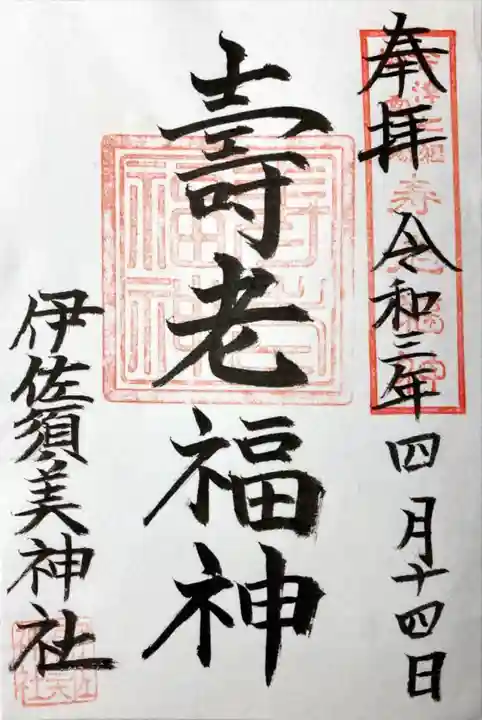 奉拝 令和三年四月十四日
壽老福神
伊佐須美神社
壽老
福神